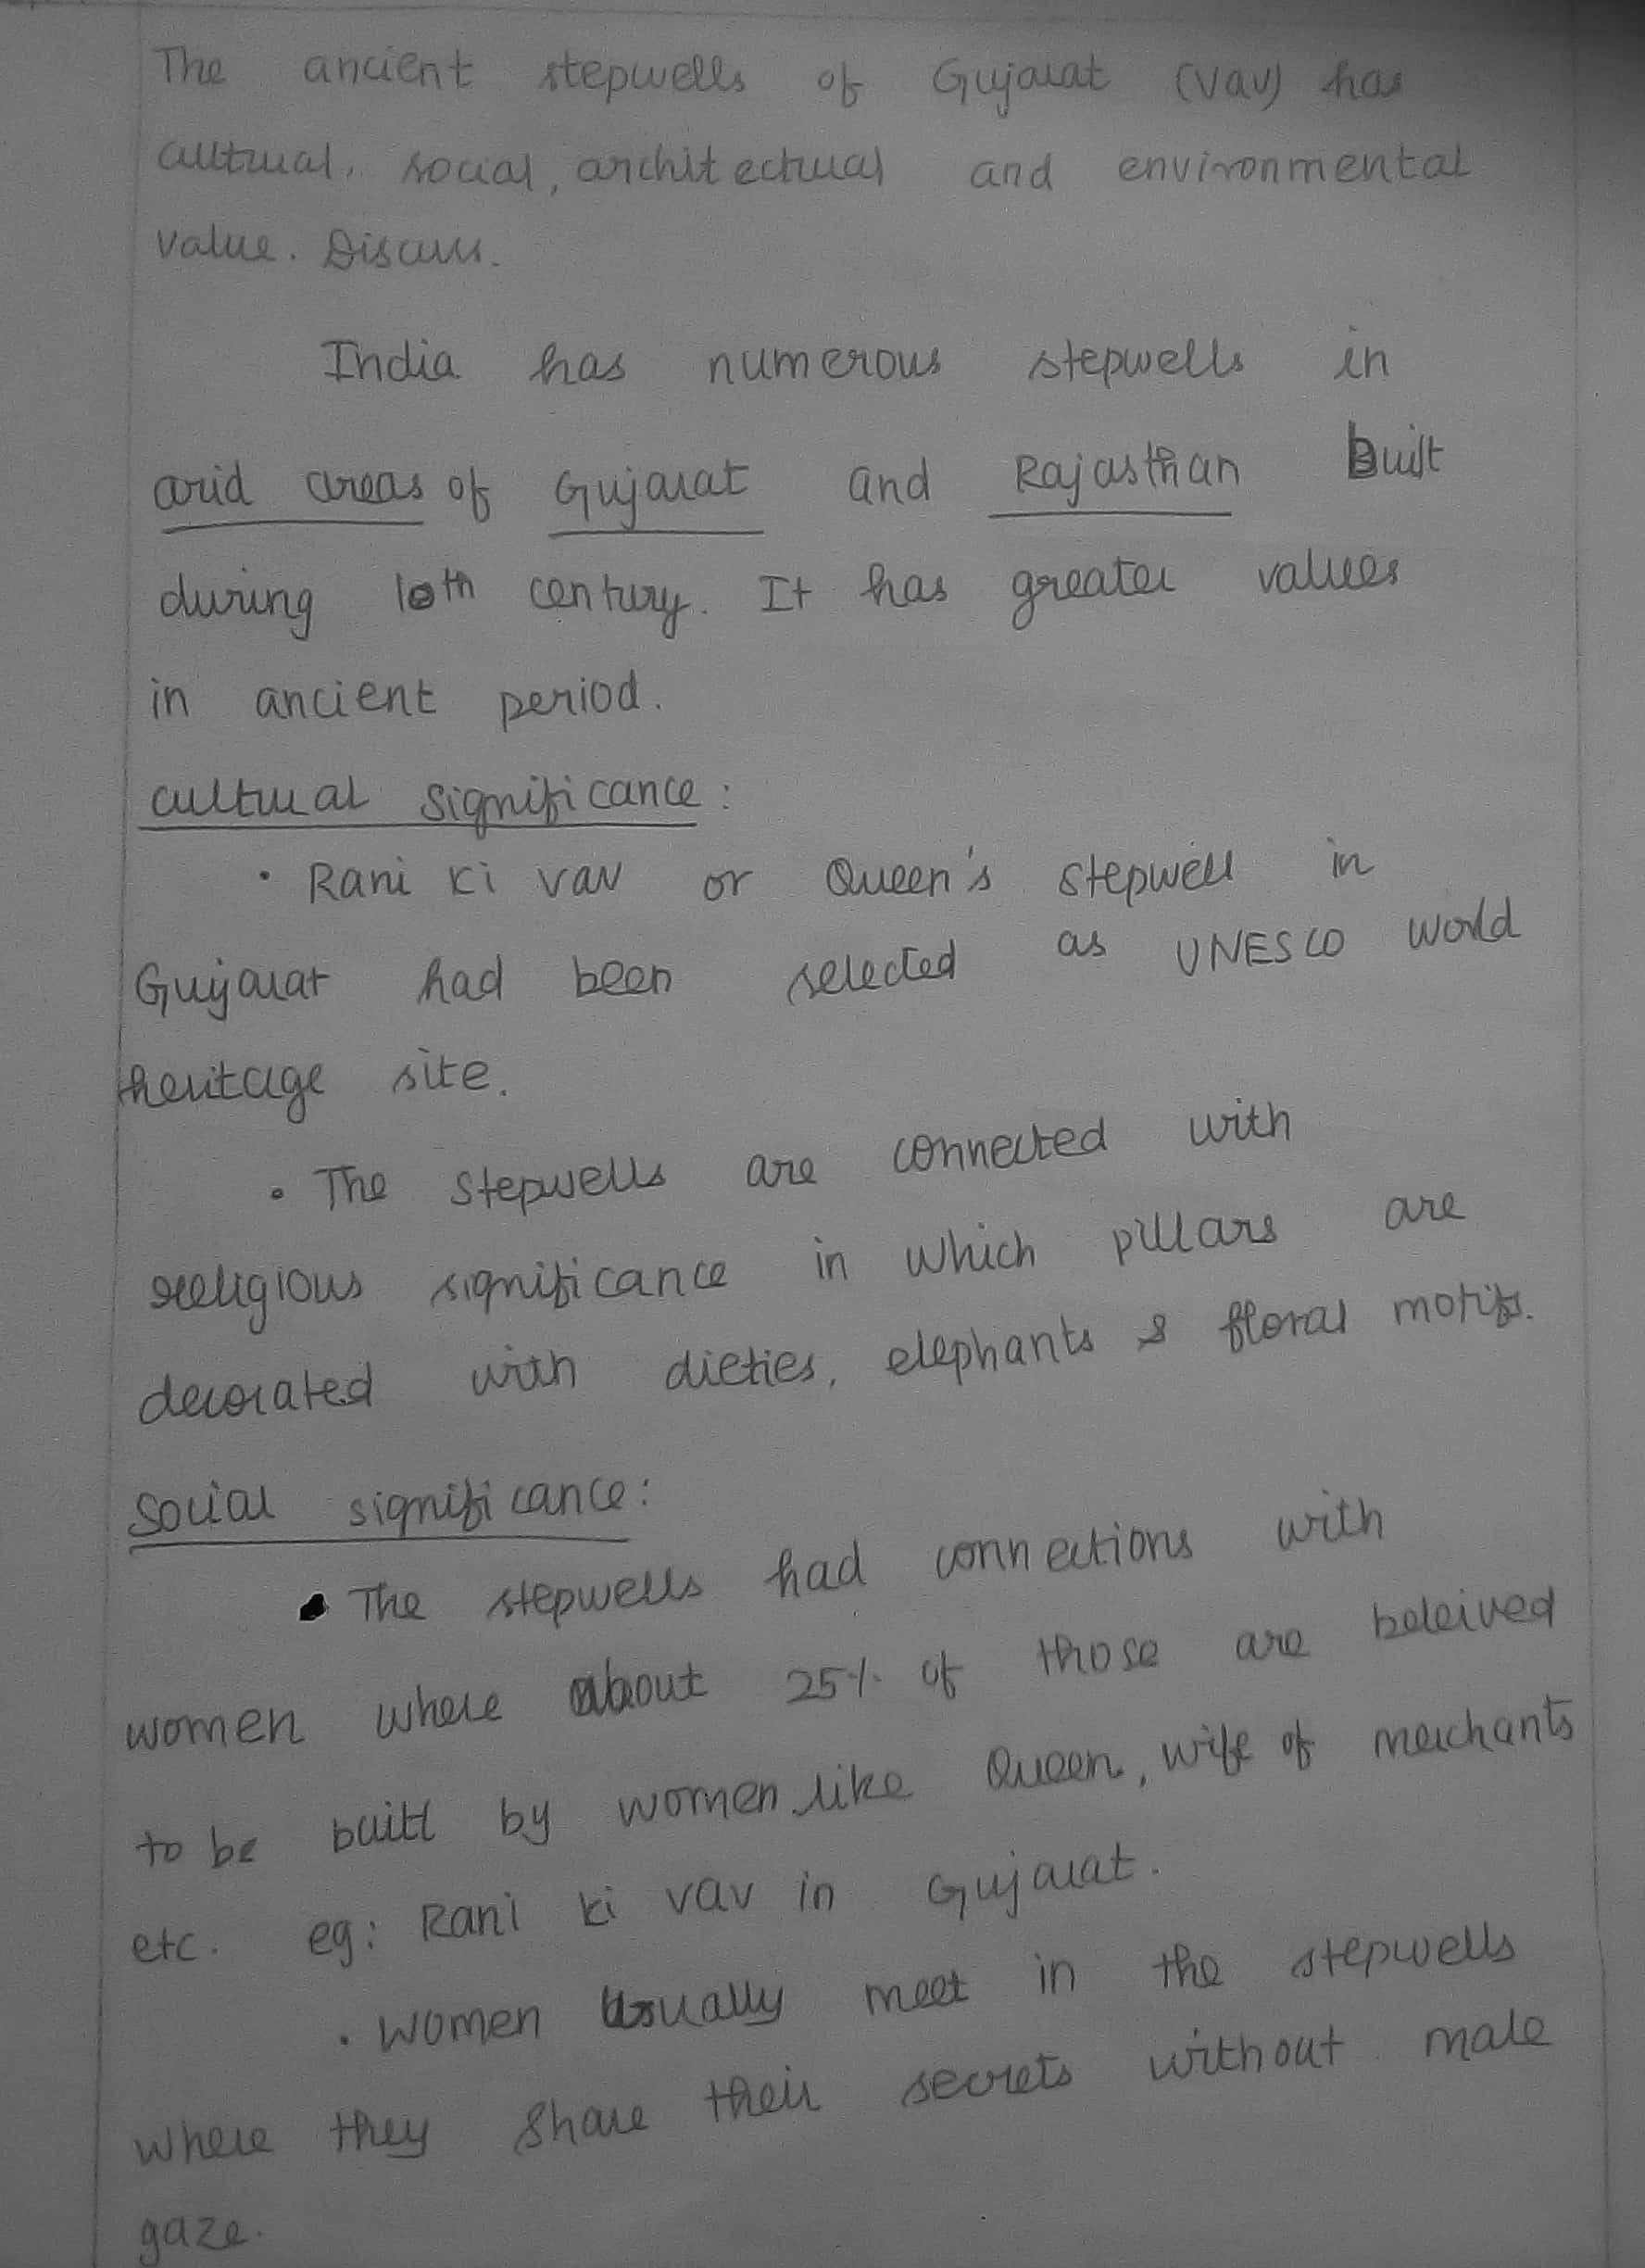 The ancient stepwells of Gujarat (vav) has
cultural, social, architectural and environmental
value. Discuss.
India has numerous stepwells in
arid areas of Gujarat and Rajasthan built
during 10th century. It has greater values
in ancient period.
cultural significance:
• Rani ki vav or Queen's stepwell in
Gujarat had been selected as UNESCO world
heritage site.
• The stepwells are connected with
religious significance in which pillars are
decorated with dieties, elephants & floral motifs.
Social significance:
• The stepwells had connections with
women where about 25% of those are beleived
to be built by women like Queen, wife of merchants
etc. eg: Rani ki vav in Gujarat.
• Women usually meet in the stepwells
where they share their secrets without male
gaze.